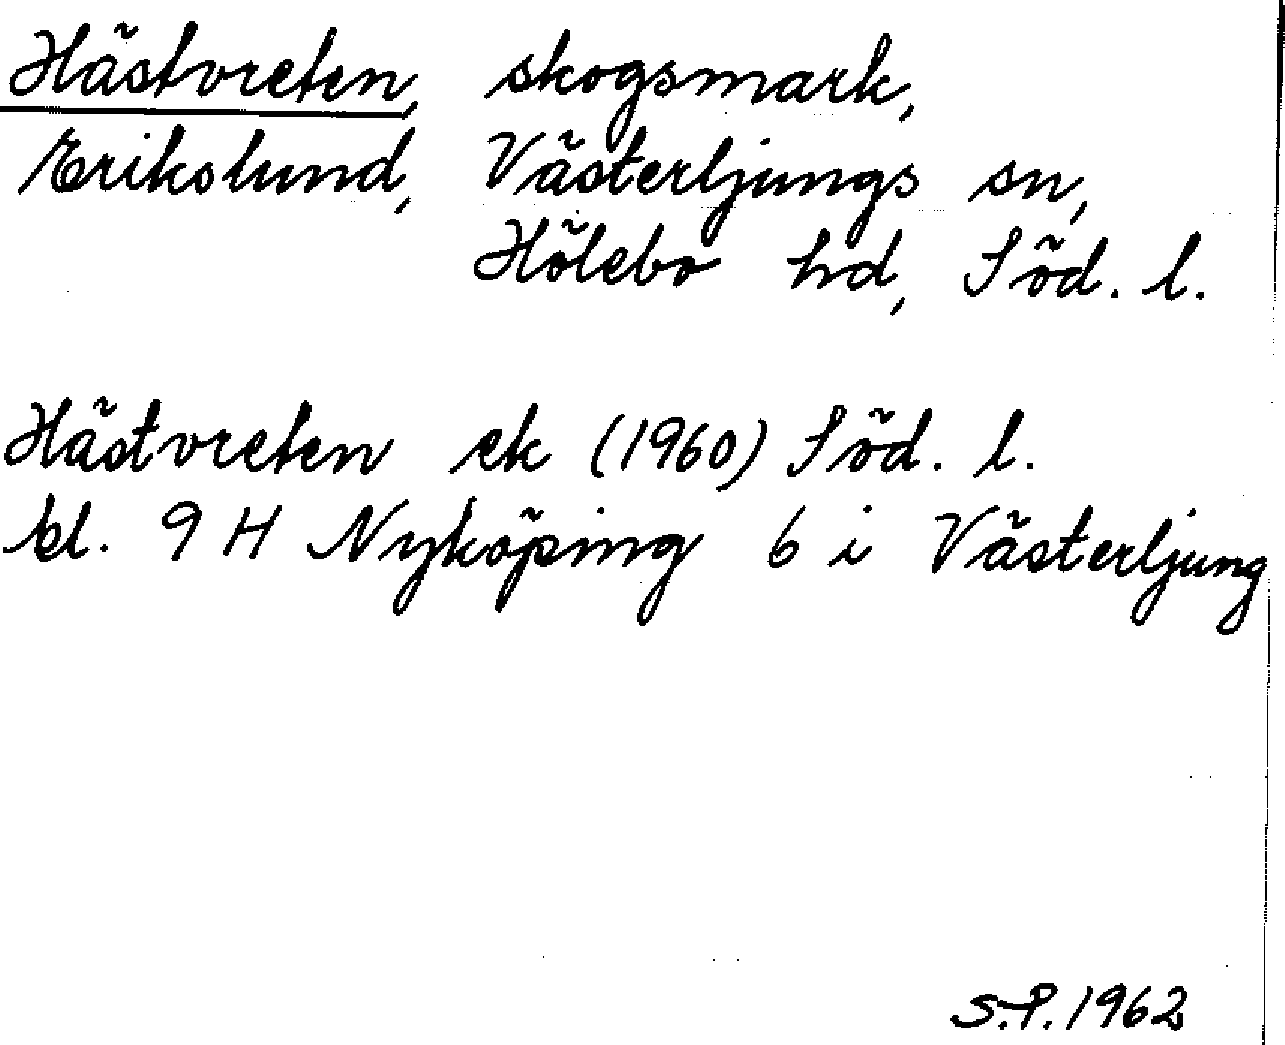 Hästvreten, skogsmark,
Erikslund, Västerljungs sn,
Hölebo hd, Söd. l.
Hästvreten ek (1960) Söd. l.
bl. 9 H Nyköping 6 i Västerljung
S.P. 1962